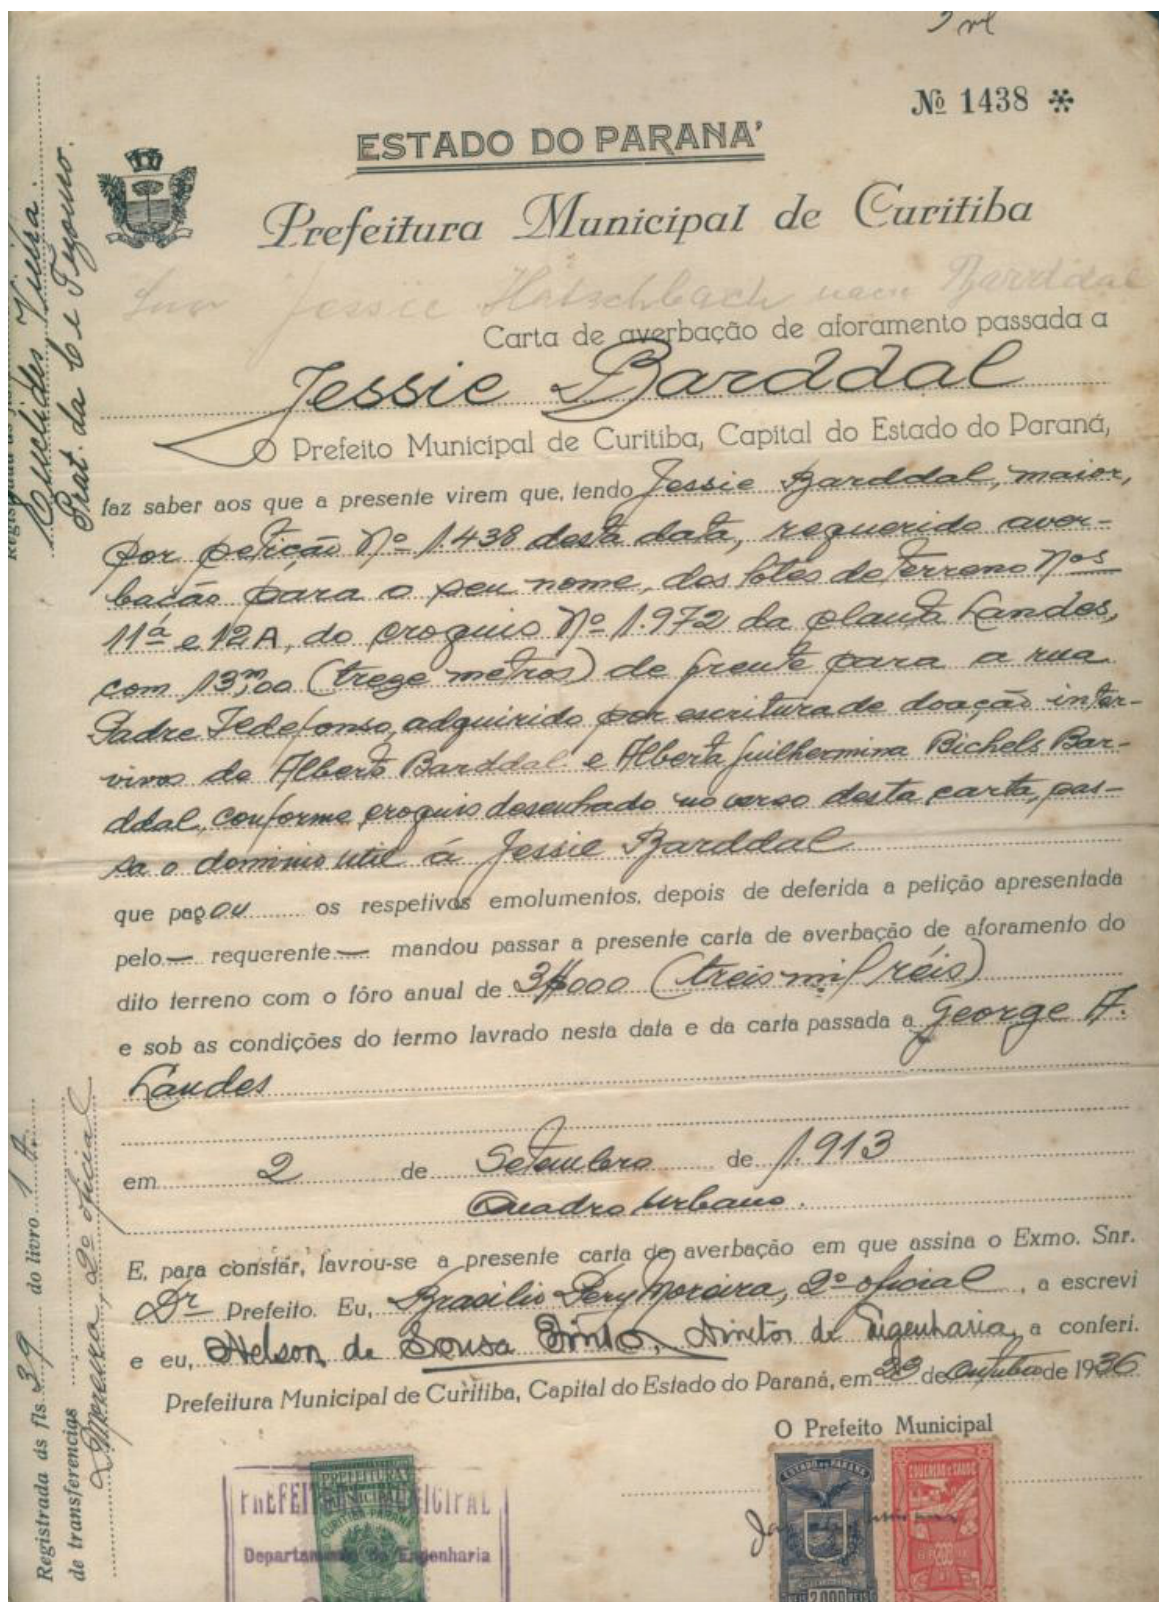 Nº 1438 *
ESTADO DO PARANA'
Prefeitura Municipal de Curitiba
Jessie Hatschbach Barddal
Carta de averbação de aforamento passada a
Jessie Barddal
O Prefeito Municipal de Curitiba, Capital do Estado do Paraná,
faz saber aos que a presente virem que, tendo Jessie Barddal, maior,
por petição Nº 1.438 desta data, requerido aver-
bação para o seu nome, dos lotes de terreno Nos
11ª e 12A, do croquis Nº 1.972 da planta Landes,
com 13m,00 (treze metros) de frente para a rua
Padre Ildefonso, adquirido por escritura de doação inter-
vivos de Alberto Barddal e Alberta Guilhermina Bichels Bar-
ddal, conforme croquis desenhado no verso desta carta, pas-
sa o dominio util á Jessie Barddal
que pagou os respetivos emolumentos, depois de deferida a petição apresentada
pelo — requerente — mandou passar a presente carta de averbação de aforamento do
dito terreno com o fôro anual de 3$000 (treis mil réis)
e sob as condições do termo lavrado nesta data e da carta passada a George A.
Landes
em 2 de Setembro de 1.913
Quadro Urbano.
E, para constar, lavrou-se a presente carta de averbação em que assina o Exmo. Snr.
Dr Prefeito. Eu, Brasilio Pery Moreira, 2º oficial, a escrevi
e eu, Nelson de Sousa Pinto, Diretor de Engenharia, a conferi.
Prefeitura Municipal de Curitiba, Capital do Estado do Paraná, em 23 de Outubro de 1936
O Prefeito Municipal
PREFEITURA MUNICIPAL
Departamento de Engenharia
PREFEITURA
MUNICIPAL
CURITIBA-PARANÁ
ESTADO DO PARANÁ
2.000 REIS
EDUCAÇÃO E SAUDE
Euclides Vieira
Prat. da C e Tezouro.
Registrada ás fls. 39 do livro 1 A.
de transferencias
Moreira, 2º oficial